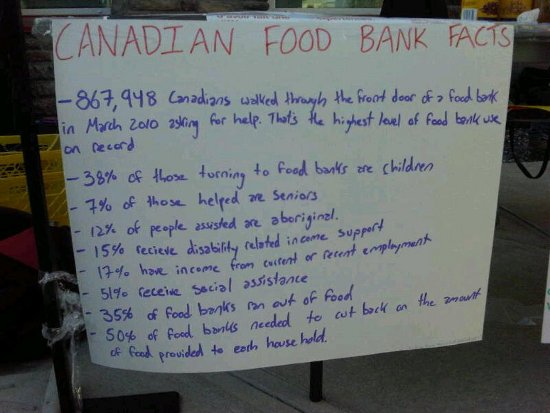 CANADIAN FOOD BANK FACTS
- 867,948 Canadians walked through the front door of a food bank
in March 2010 asking for help. That's the highest level of food bank use
on record
- 38% of those turning to food banks are children
- 7% of those helped are seniors
- 12% of people assisted are aboriginal.
- 15% recieve disability related income support
- 17% have income from current or recent employment
- 51% receive social assistance
- 35% of food banks ran out of food
- 50% of food banks needed to cut back on the amount
of food provided to each household.